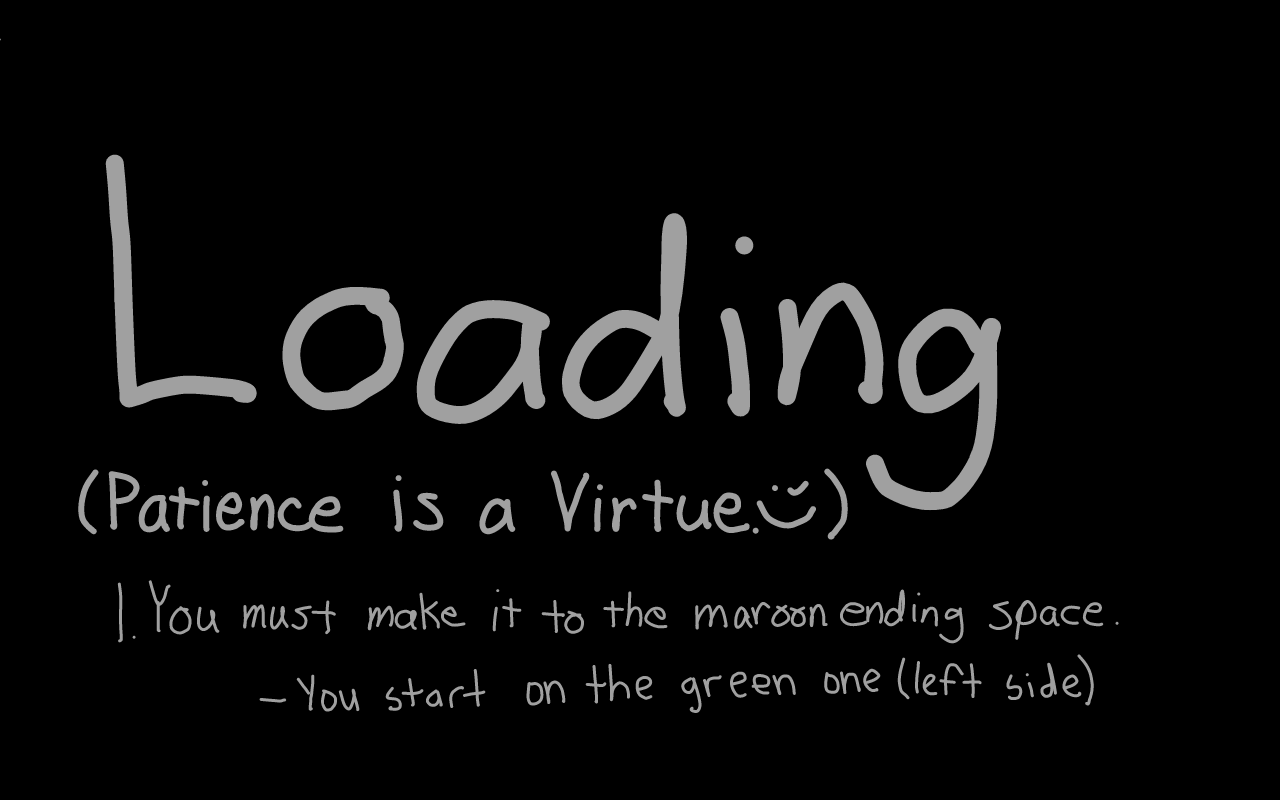 Loading
(Patience is a Virtue.)
1. You must make it to the maroon ending space.
– You start on the green one (left side)